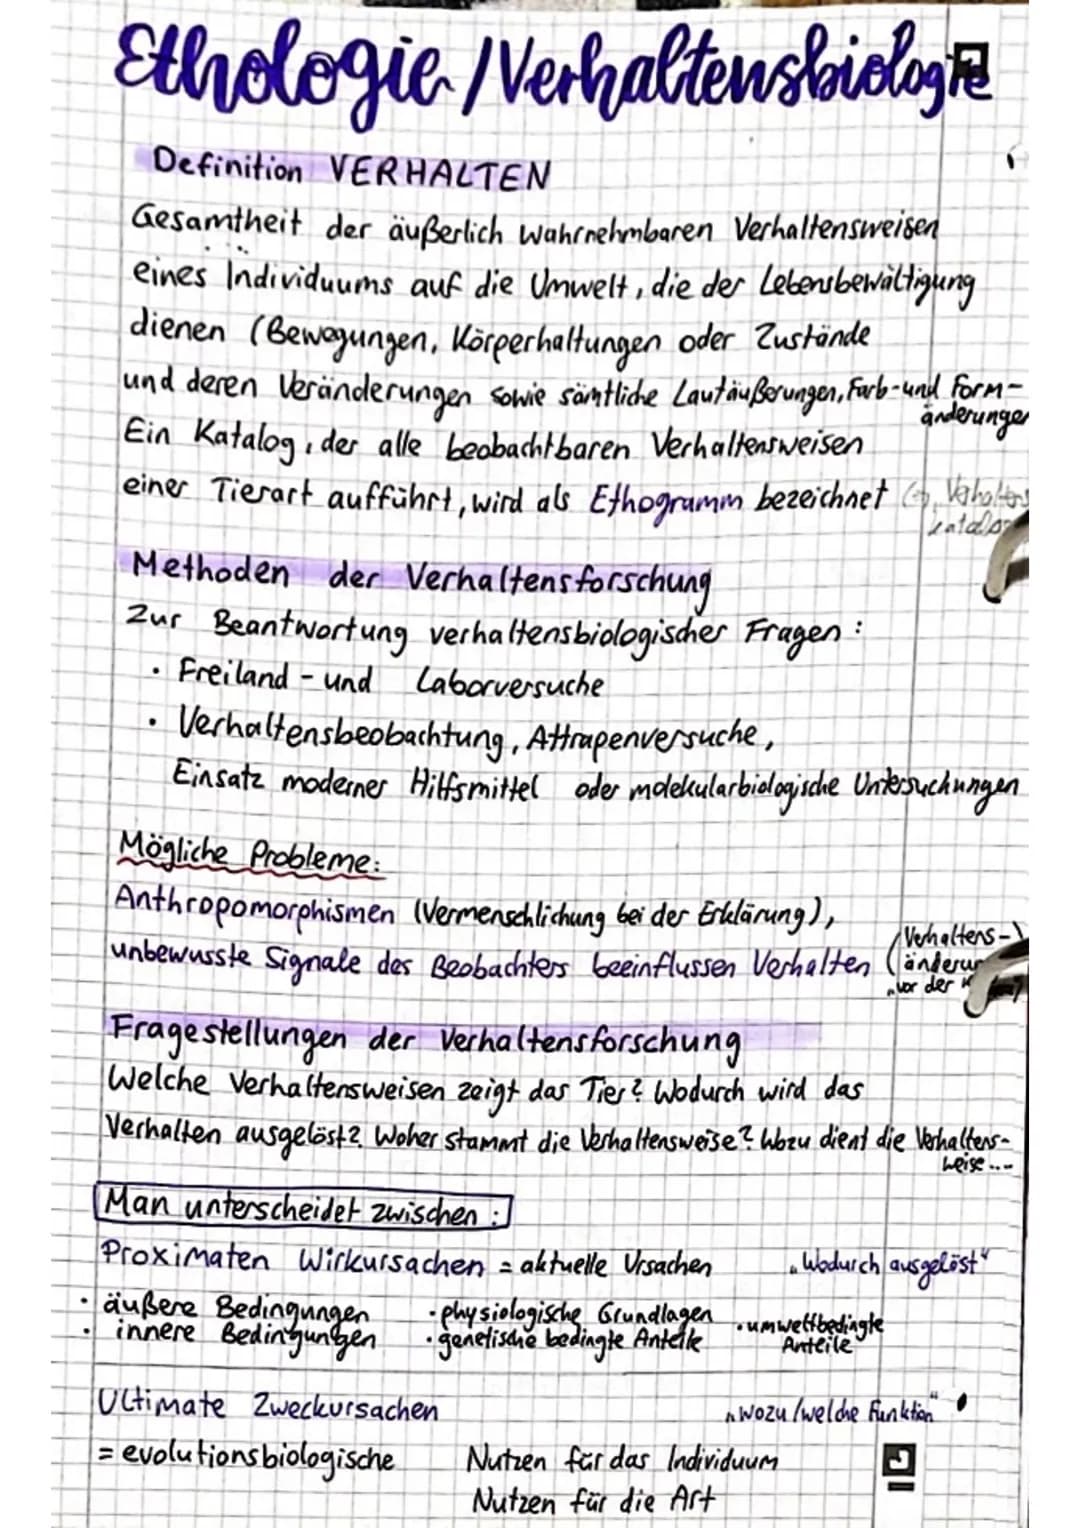 Ethologie / Verhaltensbiologie
Definition VERHALTEN
Gesamtheit der äußerlich wahrnehmbaren Verhaltensweisen
eines Individuums auf die Umwelt, die der Lebensbewältigung
dienen (Bewegungen, Körperhaltungen oder Zustände
und deren Veränderungen sowie sämtliche Lautäußerungen, Farb- und Form-
änderungen
Ein Katalog, der alle beobachtbaren Verhaltensweisen
einer Tierart aufführt, wird als Ethogramm bezeichnet
Methoden der Verhaltensforschung
Zur Beantwortung verhaltensbiologischer Fragen:
· Freiland- und Laborversuche
· Verhaltensbeobachtung, Attrapenversuche,
Einsatz moderner Hilfsmittel oder molekularbiologische Untersuchungen
Mögliche Probleme:
Anthropomorphismen (Vermenschlichung bei der Erklärung),
unbewusste Signale des Beobachters beeinflussen Verhalten (Verhaltens-
„vor der
Fragestellungen der Verhaltensforschung
Welche Verhaltensweisen zeigt das Tier? Wodurch wird das
Verhalten ausgelöst? Woher stammt die Verhaltensweise? Wozu dient die Verhaltens-
weise ...
Man unterscheidet zwischen:
Proximaten Wirkursachen = aktuelle Ursachen „Wodurch ausgelöst“
· äußere Bedingungen · physiologische Grundlagen · umweltbedingte
· innere Bedingungen · genetische bedingte Anteile Anteile
Ultimate Zweckursachen „wozu/welche Funktion“
= evolutionsbiologische Nutzen für das Individuum
Nutzen für die Art